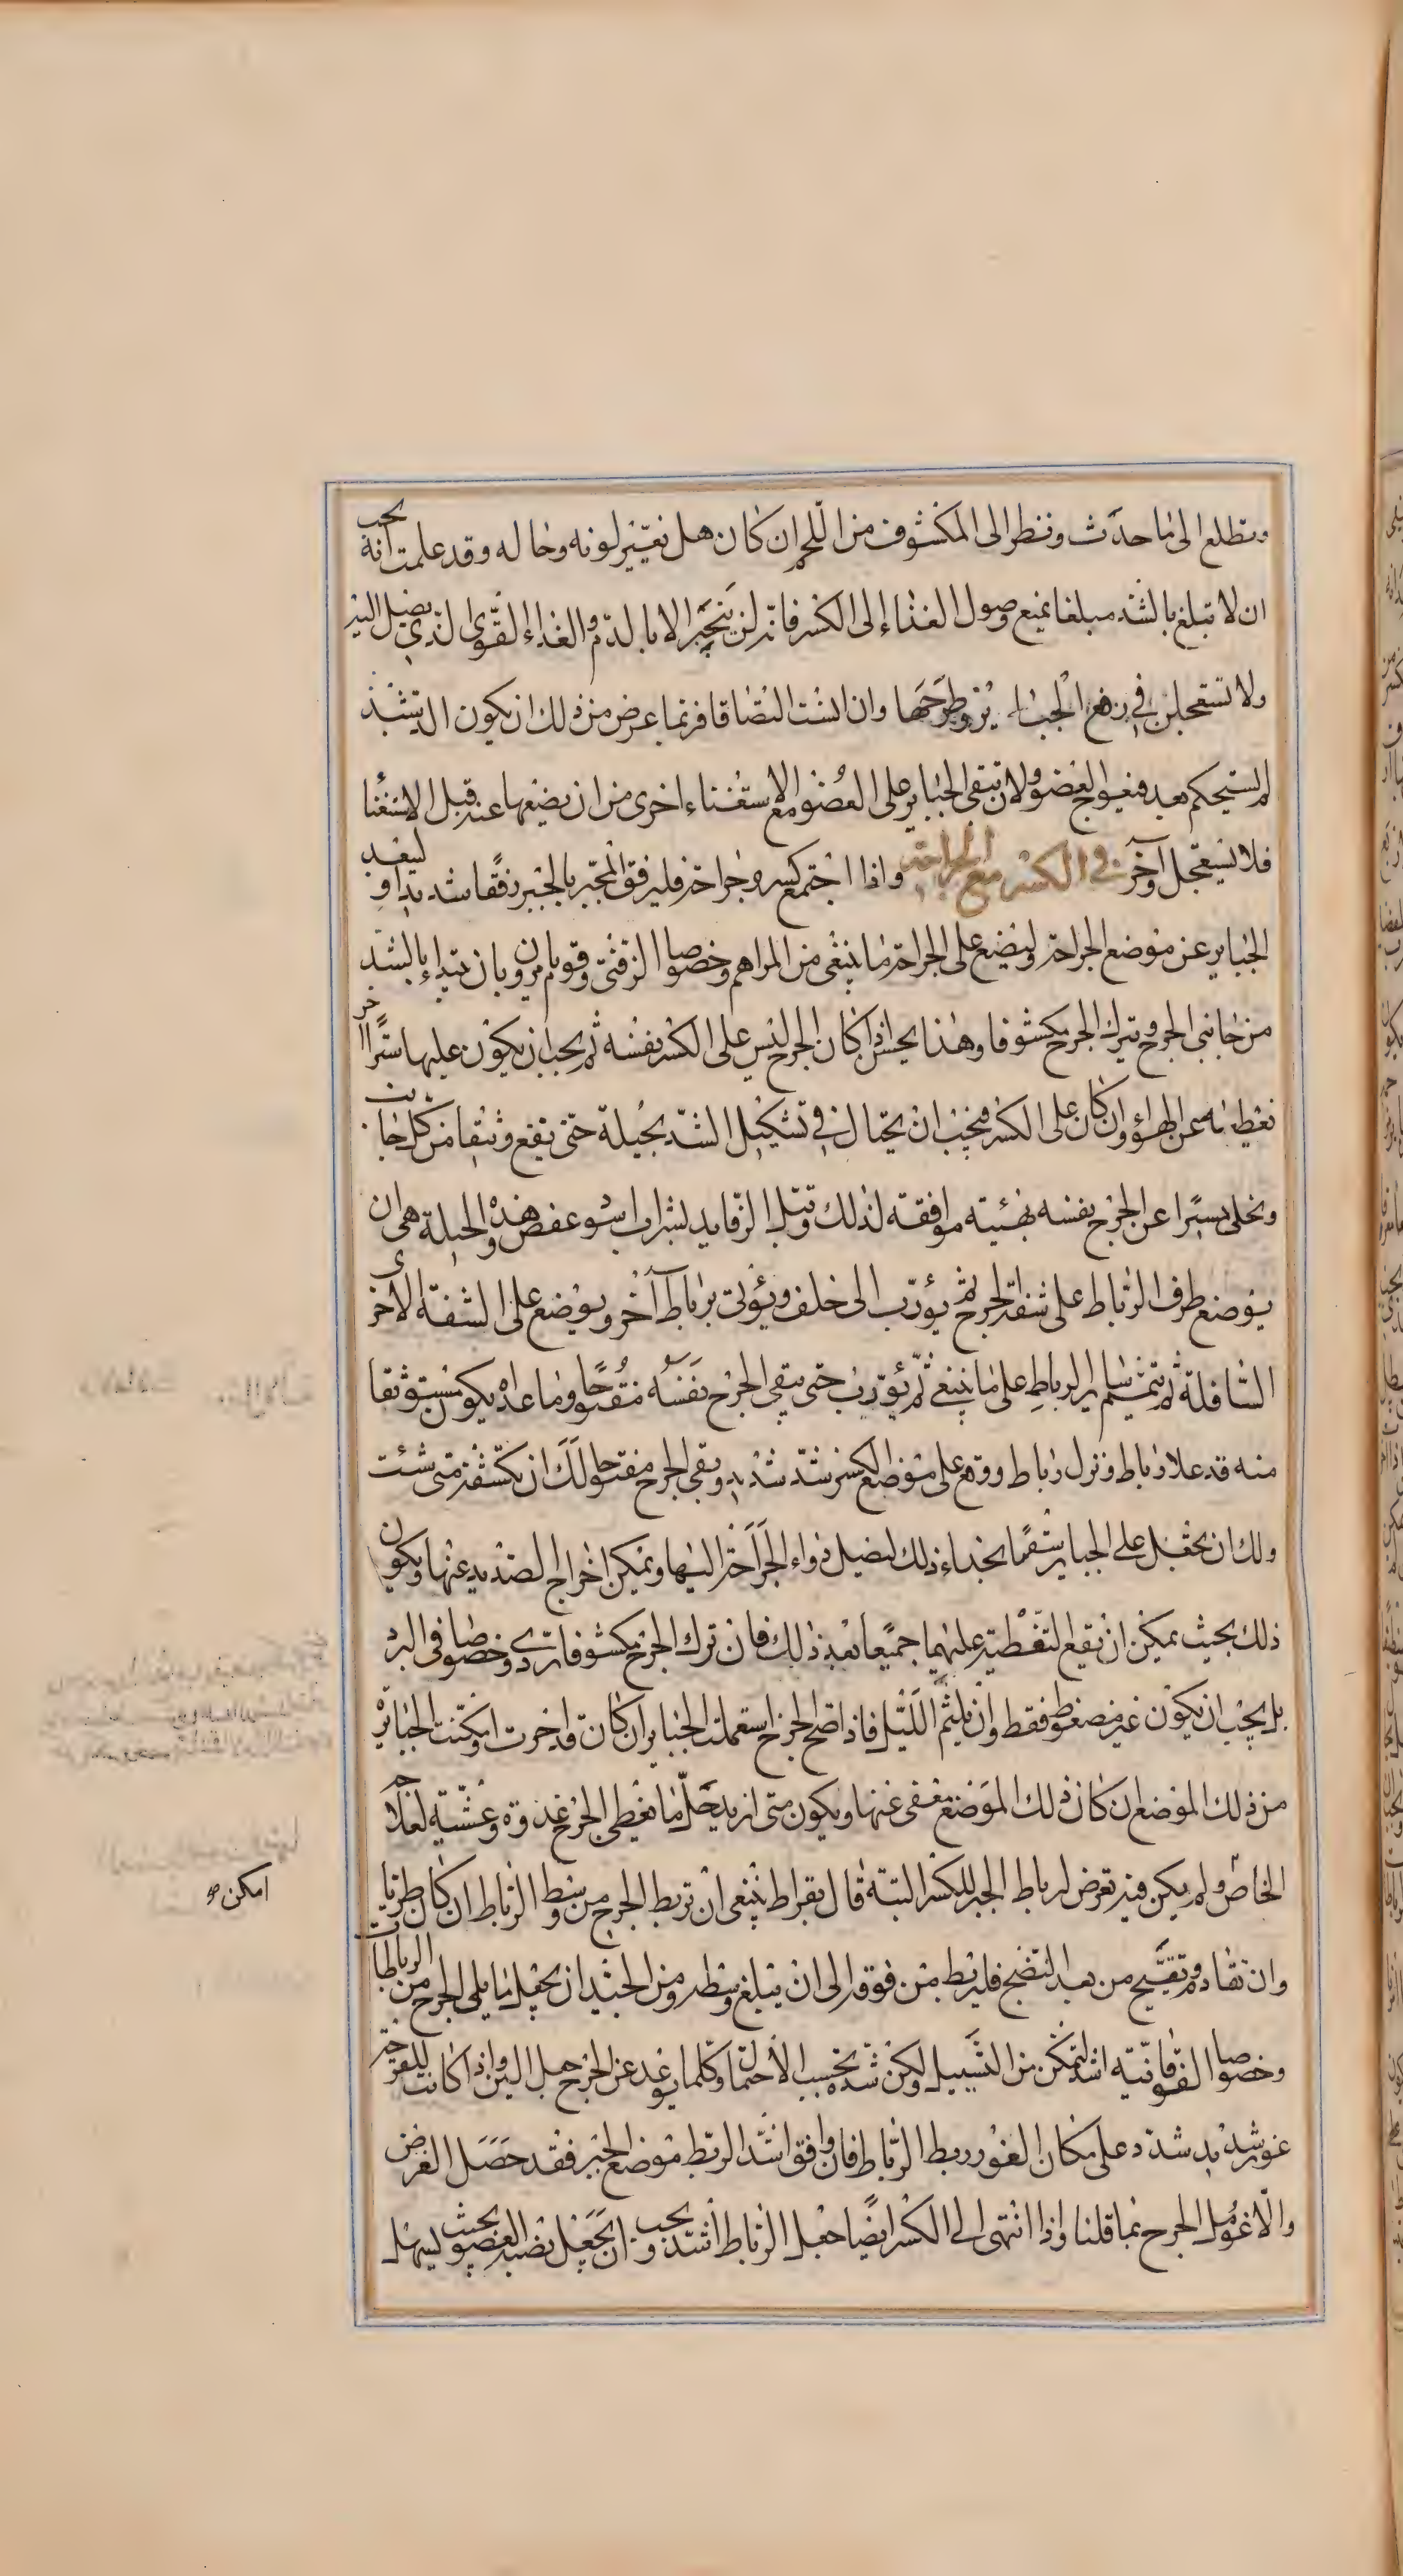 وتطلع الى ما حدث وتنظر الى المكشوف من اللحم ان كان هل تغير لونه وحاله وقد علمت انه يجب
ان لا تبلغ بالشد مبلغا يمنع وصول الغذاء إلى الكسر فانه لن ينجبر الا بالدم والغذاء القوى الذي يصل اليه
ولا تستعجلن في رفع الجبائر وطرحها وان انست التصاقا فربما عرض من ذلك ان يكون الـ
لم تستحكم بعد فيعوج العضو ولان تبقى الجبائر على العضو مع الاستغناء احرى من ان يضعها عند قبل الاستغنا
فلا تستعجل وآخر في الكسر مع الجراحة واذا اجتمع كسر وجراحة فليرفق المجبر بالجبر رفقا شديدا وليبعد
الجبائر عن موضع الجراحة وليضع على الجراحة ما ينبغى من المراهم وخصوصا الزفتى وقوم يامرون بان يبتداء بالشد
من جانبى الجرح ويترك الجرح مكشوفا وهذا يحسن اذا كان الجرح ليس على الكسر نفسه ثم يجب ان يكون عليها ستر اخر
تغطيه عن الهواء وان كان على الكسر فيجب ان يحتال في تشكيل الشد بحيلة حتى يقع وثيقا من كل جانب
ويخلى يسيرا عن الجرح نفسه بهيئته موافقة لذلك وتبل الرفايد بشراب اسود عفص وهذه الحيلة هى ان
يوضع طرف الرباط على شفة الجرح ثم يورب الى خلف ويؤتى برباط آخر ويوضع على الشفة الاخرى
السافلة ثم يتمم ساير الرباط على ما ينبغى ثم يورب حتى يبقى الجرح نفسه مفتوحا وما عداه يكون مستوثقا
منه قد علا رباط ونزل رباط ووقع على موضع الكسر شد شديد وبقى الجرح مفتوحا لك ان تكشفه متى شئت
ولك ان تجعل على الجباير شقا بحذاء ذلك ليصل دواء الجراحة اليها ويمكن اخراج الصديد عنها ويكون
ذلك بحيث يمكن ان تقع التغطية عليهما جميعا بعد ذلك فان ترك الجرح مكشوفا ردى وخصوصا في البرد
بل يجب ان يكون غير مضغوط فقط وان يلثم الليل فاذا اصح الجرح استعملت الجباير ان كان قد اخرت او مكنت الجباير
من ذلك الموضع ان كان ذلك الموضع معفى عنها ويكون متى اريد حل ما يغطى الجرح غدوة وعشية لعلاجه
الخاص ولم يكن فيه تعرض لرباط الجبر للكسر البتة قال بقراط ينبغى ان تربط الجرح من وسط الرباط ان كان طريا
وان تقادم وتقيح من بعد النضج فليربط من فوق الى ان يبلغ وسطه ومن الجيد ان يجعل ما يلى الجرح من الرباطات
وخصوصا الفوقانية اشد لتمكن من التسييل ولكن شده بحسب الاحتمال وكلما بوعد عن الجرح جعل الين واذا كانت للقرحة
غور شديد شدد على مكان الغور ربط الرباط فان وافق اشد الربط موضع الجبر فقد حصل الغرض
والا عومل الجرح بما قلنا واذا انتهى الى الكسر ايضا جعل الرباط اشد ويجب ان تجعل نصبة العضو بحيث يسهل
امكن